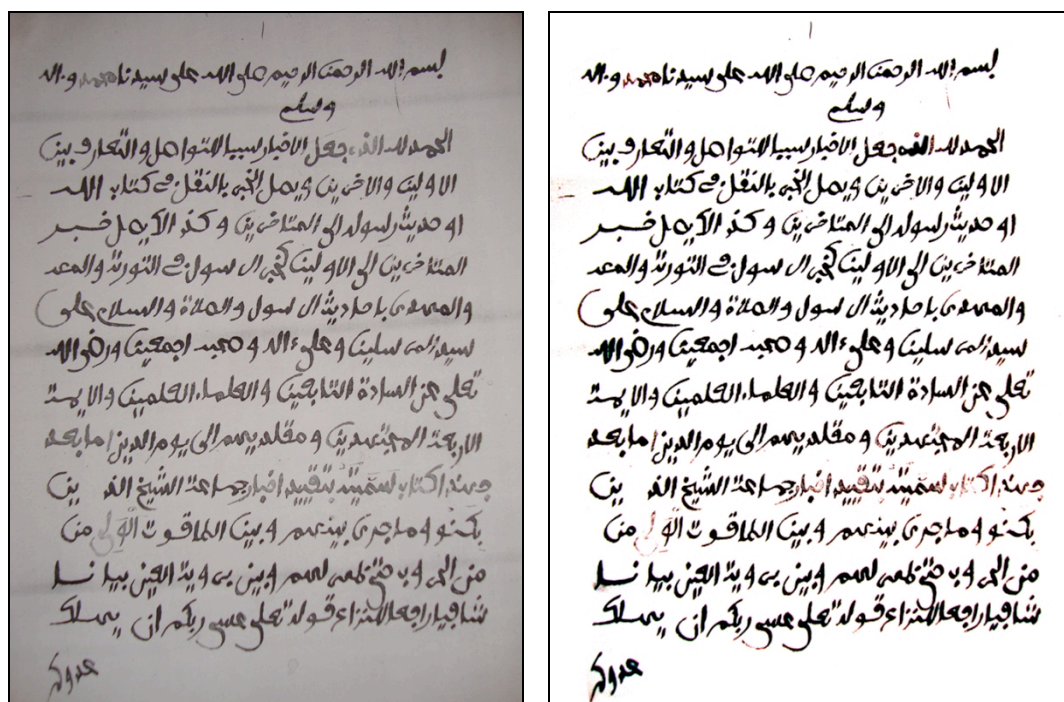 بسم الله الرحمن الرحيم صلى الله على سيدنا محمد وءاله
وسلم
الحمد لله الذي جعل الاخبار سببا للتواصل والتعارف بين
الاولين والاخرين ويصل الخبر بالنقل في كتاب الله
او حديث رسوله الى المتاخرين وكذا لا يصل خبر
المتاخرين الى الاولين كخبر الرسول في التورية
باحاديث الرسول والصلاة والسلام على
سيد المرسلين وعلى ءاله وصحبه اجمعين ورضي الله
تعلى عن السادة التابعين والعلماء العلمين والايمة
الاربعة المجتهدين ومقلديهم الى يوم الدين اما بعد
كتاب سميته بتقييد اخبار جماعة الشيخ الذين
بكنو وما جرى بينهم وبين من
من الحروب حتى لهم بيانا
شافيا راجعا قوله تعلى عسى ربكم ان يهلك
عدوكم
بسم الله الرحمن الرحيم صلى الله على سيدنا محمد وءاله
وسلم
الحمد لله الذي جعل الاخبار سببا للتواصل والتعارف بين
الاولين والاخرين ويصل الخبر بالنقل في كتاب الله
او حديث رسوله الى المتاخرين وكذا لا يصل خبر
المتاخرين الى الاولين كخبر الرسول في التورية
باحاديث الرسول والصلاة والسلام على
سيد المرسلين وعلى ءاله وصحبه اجمعين ورضي الله
تعلى عن السادة التابعين والعلماء العلمين والايمة
الاربعة المجتهدين ومقلديهم الى يوم الدين اما بعد
كتاب سميته بتقييد اخبار جماعة الشيخ الذين
بكنو وما جرى بينهم وبين من
من الحروب حتى لهم بيانا
شافيا راجعا قوله تعلى عسى ربكم ان يهلك
عدوكم